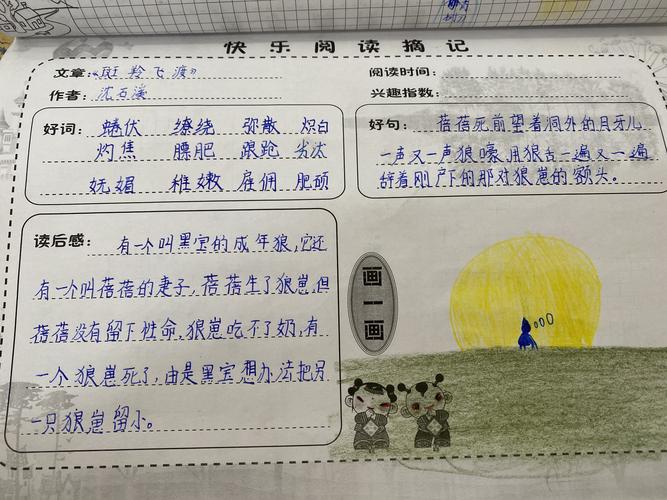 快乐阅读摘记
文章：《斑羚飞渡》
阅读时间：
作者：沈石溪
兴趣指数：
好词：蜷伏 缭绕 弥散 炽白
灼焦 膘肥 踉跄 劣汰
妩媚 稚嫩 雇佣 肥硕
好句：蓓蓓死前望着洞外的月牙儿
一声又一声狼嚎，用狼舌一遍又一遍
辞着刚产下的那对狼崽的额头。
读后感：有一个叫黑宝的成年狼，它还
有一个叫蓓蓓的妻子，蓓蓓生了狼崽，但
蓓蓓没有留下性命，狼崽吃不了奶，有
一个狼崽死了，由是黑宝想办法把另
一只狼崽留小。
画一画